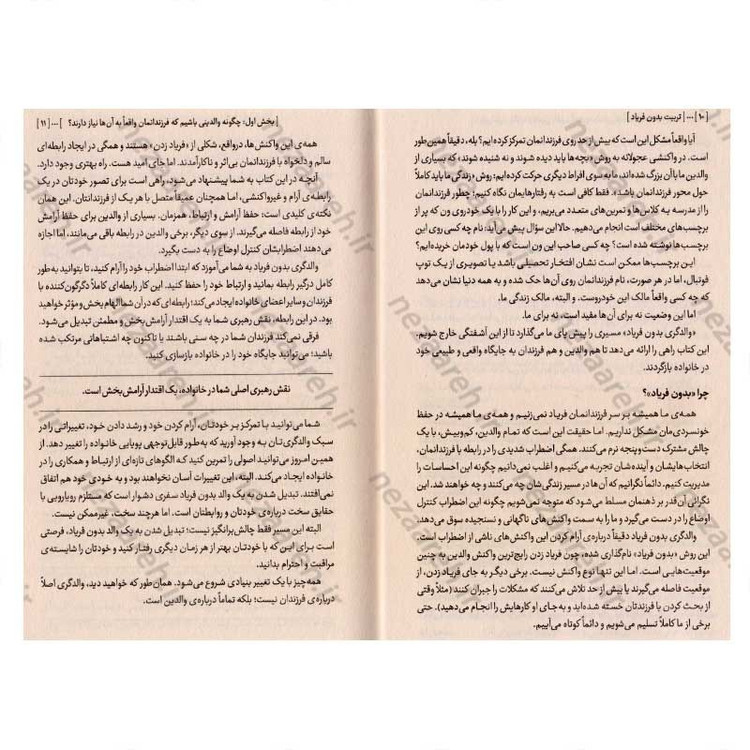 [ ۱۰ ] ... [ تربیت بدون فریاد ]
آیا واقعاً مشکل این است که بیش از حد روی فرزندانمان تمرکز کرده‌ایم؟ بله، دقیقاً همین‌طور
است. در واکنشی عجولانه به روش «بچه‌ها باید دیده شوند و نه شنیده شوند» که بسیاری از
والدین ما با آن بزرگ شده‌اند، ما به سوی افراط دیگری حرکت کرده‌ایم: روش «زندگی ما باید کاملاً
حول محور فرزندانمان باشد». فقط کافی است به رفتارهایمان نگاه کنیم؛ چطور فرزندانمان
را از مدرسه به کلاس‌ها و تمرین‌های متعدد می‌بریم، و این کار را با یک خودروی ون که پر از
برچسب‌های مختلف است انجام می‌دهیم. حالا این سؤال پیش می‌آید: نام چه کسی روی این
برچسب‌ها نوشته شده است؟ چه کسی صاحب این ون است که با پول خودمان خریده‌ایم؟
این برچسب‌ها ممکن است نشان افتخار تحصیلی باشد یا تصویری از یک توپ
فوتبال، اما در هر صورت، نام فرزندانمان روی آن‌ها حک شده و به همه دنیا نشان می‌دهد
که چه کسی واقعاً مالک این خودروست. و البته، مالک زندگی ما.
اما این وضعیت نه برای آن‌ها مفید است، نه برای ما.
«والدگری بدون فریاد» مسیری را پیش پای ما می‌گذارد تا از این آشفتگی خارج شویم.
این کتاب راهی را ارائه می‌دهد تا هم والدین و هم فرزندان به جایگاه واقعی و طبیعی خود
در خانواده بازگردند.
چرا «بدون فریاد»؟
همه‌ی ما همیشه بر سر فرزندانمان فریاد نمی‌زنیم و همه‌ی ما همیشه در حفظ
خونسردی‌مان مشکل نداریم. اما حقیقت این است که تمام والدین، کم‌وبیش، با یک
چالش مشترک دست‌وپنجه نرم می‌کنند. همگی اضطراب شدیدی را در رابطه با فرزندانمان،
انتخاب‌هایشان و آینده‌شان تجربه می‌کنیم و اغلب نمی‌دانیم چگونه این احساسات را
مدیریت کنیم. دائماً نگرانیم که آن‌ها در زندگی‌شان چه می‌کنند و چه خواهند شد. این
نگرانی آن‌قدر بر ذهنمان مسلط می‌شود که متوجه نمی‌شویم چگونه این اضطراب کنترل
اوضاع را در دست می‌گیرد و ما را به سمت واکنش‌های ناگهانی و نسنجیده سوق می‌دهد.
والدگری بدون فریاد دقیقاً درباره‌ی آرام کردن این واکنش‌های ناشی از اضطراب است.
این روش «بدون فریاد» نام‌گذاری شده، چون فریاد زدن رایج‌ترین واکنش والدین به چنین
موقعیت‌هایی است. اما این تنها نوع واکنش نیست. برخی دیگر به جای فریاد زدن، از
موقعیت فاصله می‌گیرند یا بیش از حد تلاش می‌کنند که مشکلات را جبران کنند (مثلاً وقتی
از بحث کردن با فرزندتان خسته شده‌اید و به‌جای او کارهایش را انجام می‌دهید). حتی
برخی از ما کاملاً تسلیم می‌شویم و دائماً کوتاه می‌آییم.
[ بخش اول: چگونه والدینی باشیم که فرزندانمان واقعاً به آن‌ها نیاز دارند؟ ] ... [ ۱۱ ]
همه‌ی این واکنش‌ها، درواقع، شکلی از «فریاد زدن» هستند و همگی در ایجاد رابطه‌ای
سالم و دلخواه با فرزندانمان بی‌اثر و ناکارآمدند. اما جای امید هست. راه بهتری وجود دارد.
آنچه در این کتاب به شما پیشنهاد می‌شود، راهی است برای تصور خودتان در یک
رابطه‌ی آرام و غیرواکنشی، اما همچنان عمیقاً متصل با هر یک از فرزندانتان. این همان
نکته‌ی کلیدی است: حفظ آرامش و ارتباط، همزمان. بسیاری از والدین برای حفظ آرامش
خود از رابطه فاصله می‌گیرند. از سوی دیگر، برخی والدین در رابطه باقی می‌مانند، اما اجازه
می‌دهند اضطرابشان کنترل اوضاع را به دست بگیرد.
والدگری بدون فریاد به شما می‌آموزد که ابتدا اضطراب خود را آرام کنید، تا بتوانید به‌طور
کامل درگیر رابطه بمانید و ارتباط خود را حفظ کنید. این کار رابطه‌ای کاملاً دگرگون‌کننده با
فرزندان و سایر اعضای خانواده ایجاد می‌کند؛ رابطه‌ای که در آن شما الهام‌بخش و مؤثر خواهید
بود. در این رابطه، نقش رهبری شما به یک اقتدار آرامش‌بخش و مطمئن تبدیل می‌شود.
فرقی نمی‌کند فرزندان شما در چه سنی باشند یا تاکنون چه اشتباهاتی مرتکب شده
باشید؛ می‌توانید جایگاه خود را در خانواده بازسازی کنید.
نقش رهبری اصلی شما در خانواده، یک اقتدار آرامش‌بخش است.
شما می‌توانید با تمرکز بر خودتان، آرام کردن خود و رشد دادن خود، تغییراتی را در
سبک والدگری‌تان به وجود آورید که به‌طور قابل‌توجهی پویایی خانواده را تغییر دهد. از
همین امروز می‌توانید اصولی را تمرین کنید که الگوهای تازه‌ای از ارتباط و همکاری را در
خانواده ایجاد می‌کند. البته، این تغییرات آسان نخواهند بود و به خودی خود هم اتفاق
نمی‌افتند. تبدیل شدن به یک والد بدون فریاد سفری دشوار است که مستلزم رویارویی با
حقایق سخت درباره‌ی خودتان و روابطتان است. اما هرچند سخت، غیرممکن نیست.
البته این مسیر فقط چالش‌برانگیز نیست؛ تبدیل شدن به یک والد بدون فریاد، فرصتی
است برای این که با خودتان بهتر از هر زمان دیگری رفتار کنید و خودتان را شایسته‌ی
مراقبت و احترام بدانید.
همه‌چیز با یک تغییر بنیادی شروع می‌شود. همان‌طور که خواهید دید، والدگری اصلاً
درباره‌ی فرزندان نیست؛ بلکه تماماً درباره‌ی والدین است.
nezaareh.ir